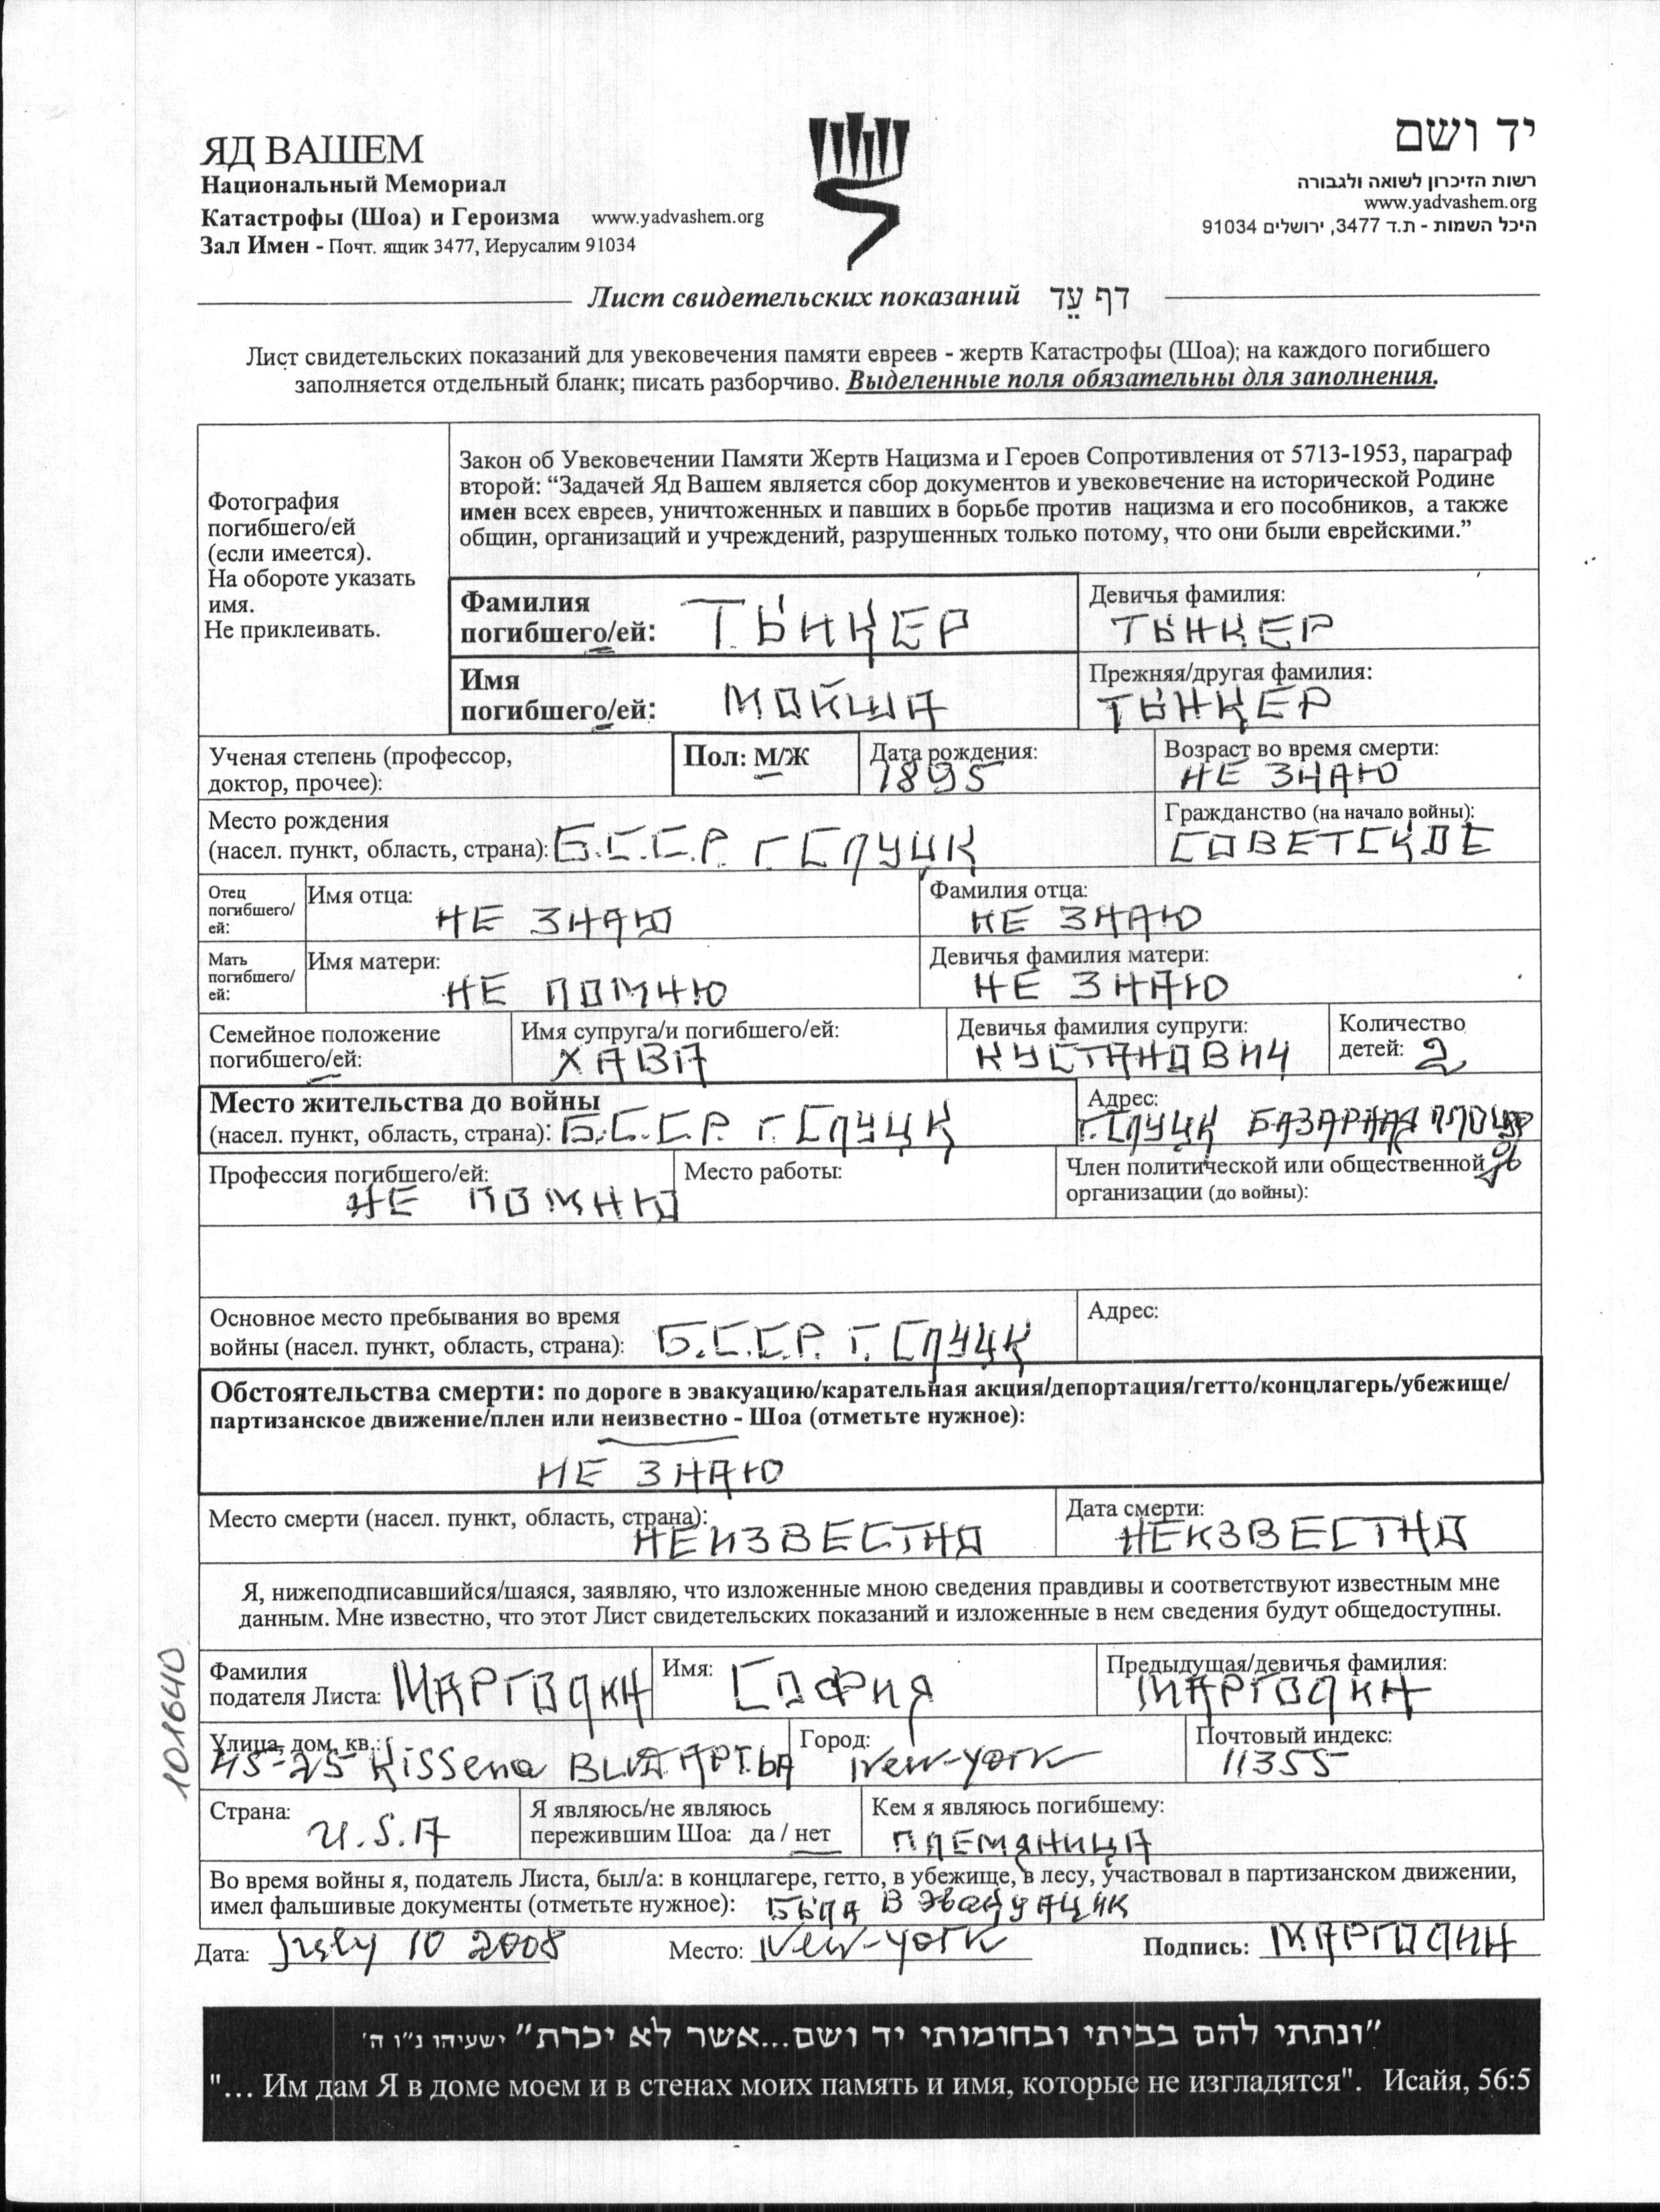 ЯД ВАШЕМ
Национальный Мемориал
Катастрофы (Шоа) и Героизма www.yadvashem.org
Зал Имен - Почт. ящик 3477, Иерусалим 91034
יד ושם
רשות הזיכרון לשואה ולגבורה
www.yadvashem.org
היכל השמות - ת.ד 3477, ירושלים 91034
Лист свидетельских показаний דף עֵד
Лист свидетельских показаний для увековечения памяти евреев - жертв Катастрофы (Шоа); на каждого погибшего
заполняется отдельный бланк; писать разборчиво. Выделенные поля обязательны для заполнения.
Фотография
погибшего/ей
(если имеется).
На обороте указать
имя.
Не приклеивать.
Закон об Увековечении Памяти Жертв Нацизма и Героев Сопротивления от 5713-1953, параграф
второй: “Задачей Яд Вашем является сбор документов и увековечение на исторической Родине
имен всех евреев, уничтоженных и павших в борьбе против нацизма и его пособников, а также
общин, организаций и учреждений, разрушенных только потому, что они были еврейскими.”
Фамилия
погибшего/ей: ТЫНКЕР
Девичья фамилия:
ТЫНКЕР
Имя
погибшего/ей: МОЙША
Прежняя/другая фамилия:
ТЫНКЕР
Ученая степень (профессор,
доктор, прочее):
Пол: М/Ж
Дата рождения:
1895
Возраст во время смерти:
НЕ ЗНАЮ
Место рождения
(насел. пункт, область, страна): Б.С.С.Р. г. СЛУЦК
Гражданство (на начало войны):
СОВЕТСКОЕ
Отец
погибшего/
ей:
Имя отца:
НЕ ЗНАЮ
Фамилия отца:
НЕ ЗНАЮ
Мать
погибшего/
ей:
Имя матери:
НЕ ПОМНЮ
Девичья фамилия матери:
НЕ ЗНАЮ
Семейное положение
погибшего/ей:
Имя супруга/и погибшего/ей:
ХАВА
Девичья фамилия супруги:
КУСТАНОВИЧ
Количество
детей: 2
Место жительства до войны
(насел. пункт, область, страна): Б.С.С.Р. г. СЛУЦК
Адрес:
г. СЛУЦК БАЗАРНАЯ
Профессия погибшего/ей:
НЕ ПОМНЮ
Место работы:
Член политической или общественной
организации (до войны):
Основное место пребывания во время
войны (насел. пункт, область, страна): Б.С.С.Р. г. СЛУЦК
Адрес:
Обстоятельства смерти: по дороге в эвакуацию/карательная акция/депортация/гетто/концлагерь/убежище/
партизанское движение/плен или неизвестно - Шоа (отметьте нужное):
НЕ ЗНАЮ
Место смерти (насел. пункт, область, страна):
НЕИЗВЕСТНО
Дата смерти:
НЕИЗВЕСТНО
Я, нижеподписавшийся/шаяся, заявляю, что изложенные мною сведения правдивы и соответствуют известным мне
данным. Мне известно, что этот Лист свидетельских показаний и изложенные в нем сведения будут общедоступны.
101640
Фамилия
подателя Листа: МАРГОЛИН
Имя: СОФИЯ
Предыдущая/девичья фамилия:
МАРГОЛИН
Улица, дом, кв.:
45-25 Kissena BLVD APT. 6A
Город:
New-york
Почтовый индекс:
11355
Страна: U.S.A
Я являюсь/не являюсь
пережившим Шоа: да / нет
Кем я являюсь погибшему:
ПЛЕМЯНИЦА
Во время войны я, податель Листа, был/а: в концлагере, гетто, в убежище, в лесу, участвовал в партизанском движении,
имел фальшивые документы (отметьте нужное): БЫЛА В ЭВАКУАЦИИ
Дата: July 10 2008 Место: New-york Подпись: МАРГОЛИН
”ונתתי להם בביתי ובחומותי יד ושם...אשר לא יכרת” ישעיהו נ”ו ה'
"… Им дам Я в доме моем и в стенах моих память и имя, которые не изгладятся". Исайя, 56:5